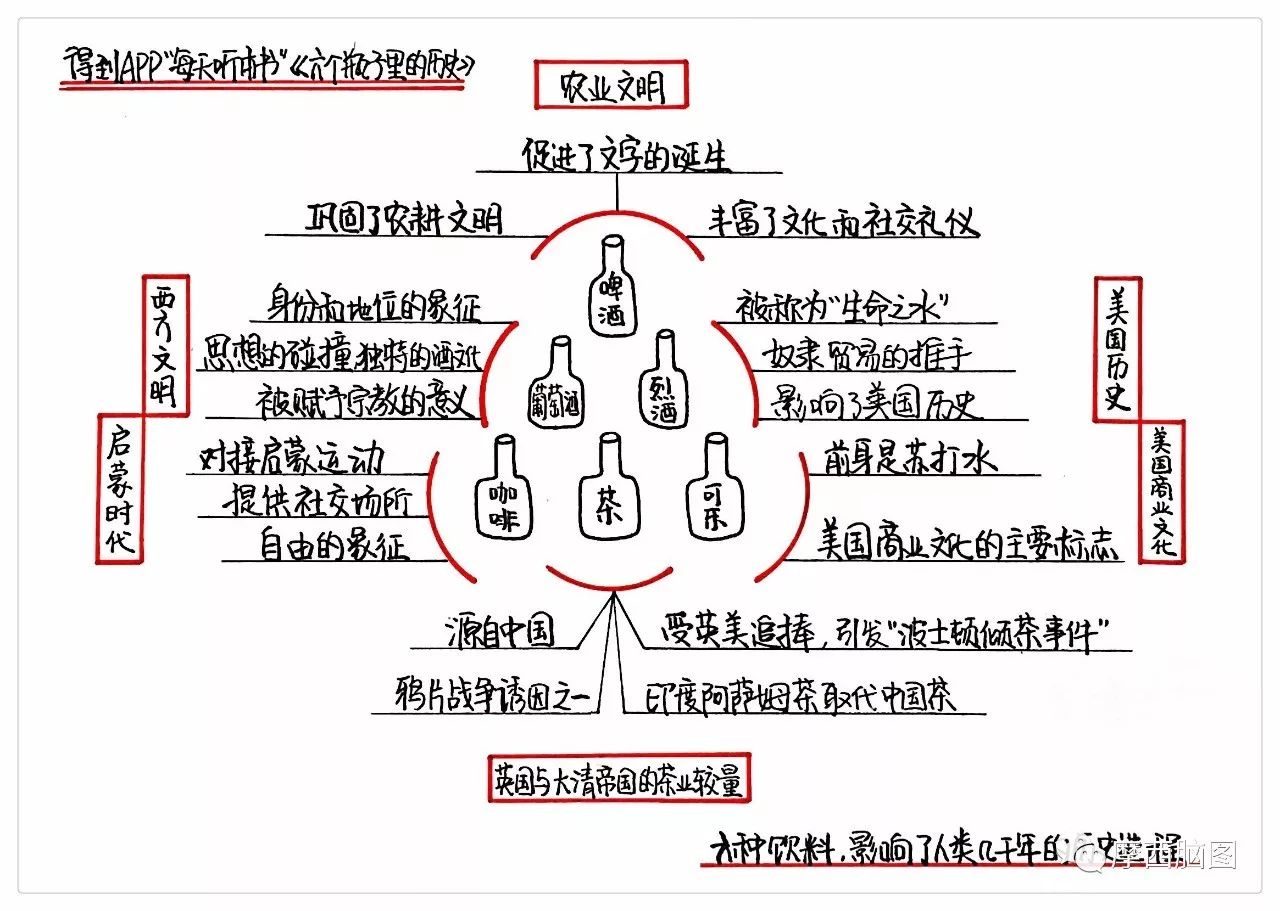 得到APP"每天听本书"《六个瓶子里的历史》
农业文明
促进了文字的诞生
巩固了农耕文明
丰富了文化和社交礼仪
啤酒
西方文明
身份和地位的象征
思想的碰撞,独特的酒文化
被赋予宗教的意义
葡萄酒
烈酒
被称为"生命之水"
奴隶贸易的推手
影响了美国历史
美国历史
启蒙时代
对接启蒙运动
提供社交场所
自由的象征
咖啡
茶
可乐
前身是苏打水
美国商业文化的主要标志
美国商业文化
源自中国
受英美追捧,引发"波士顿倾茶事件"
鸦片战争诱因之一
印度阿萨姆茶取代中国茶
英国与大清帝国的茶业较量
六种饮料,影响了人类几千年的历史
摩西脑图